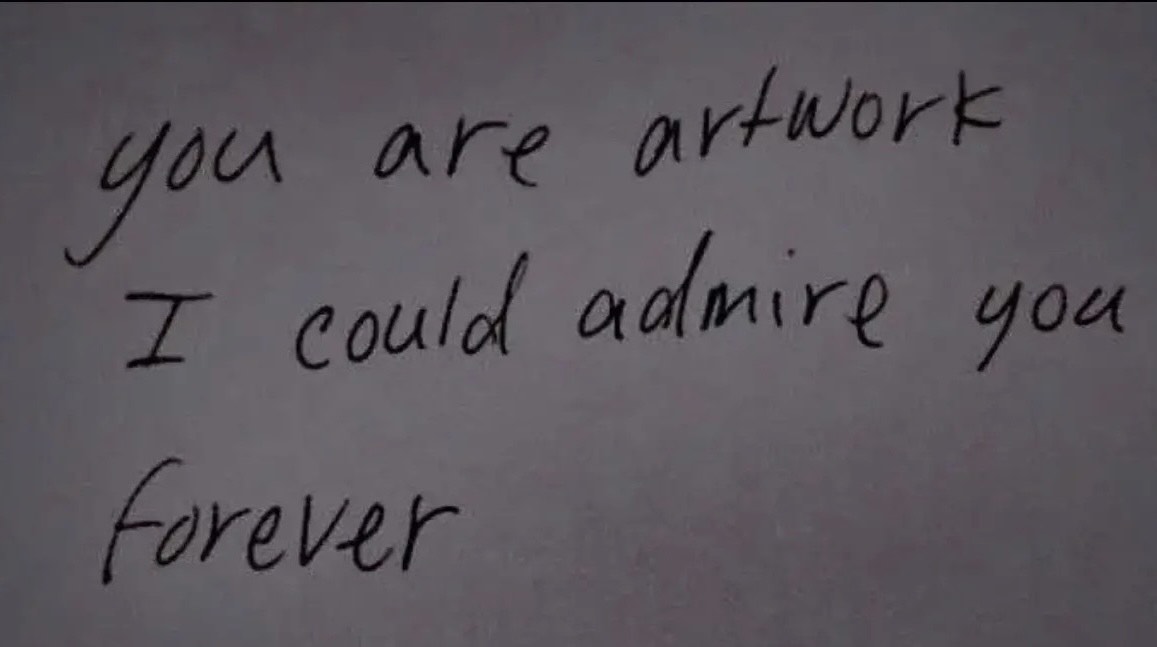 you are artwork
I could admire you
forever